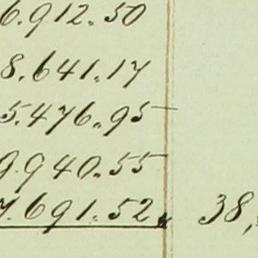 6.912.50
8.641.17
5.476.95
9.940.55
7.691.52. 38,